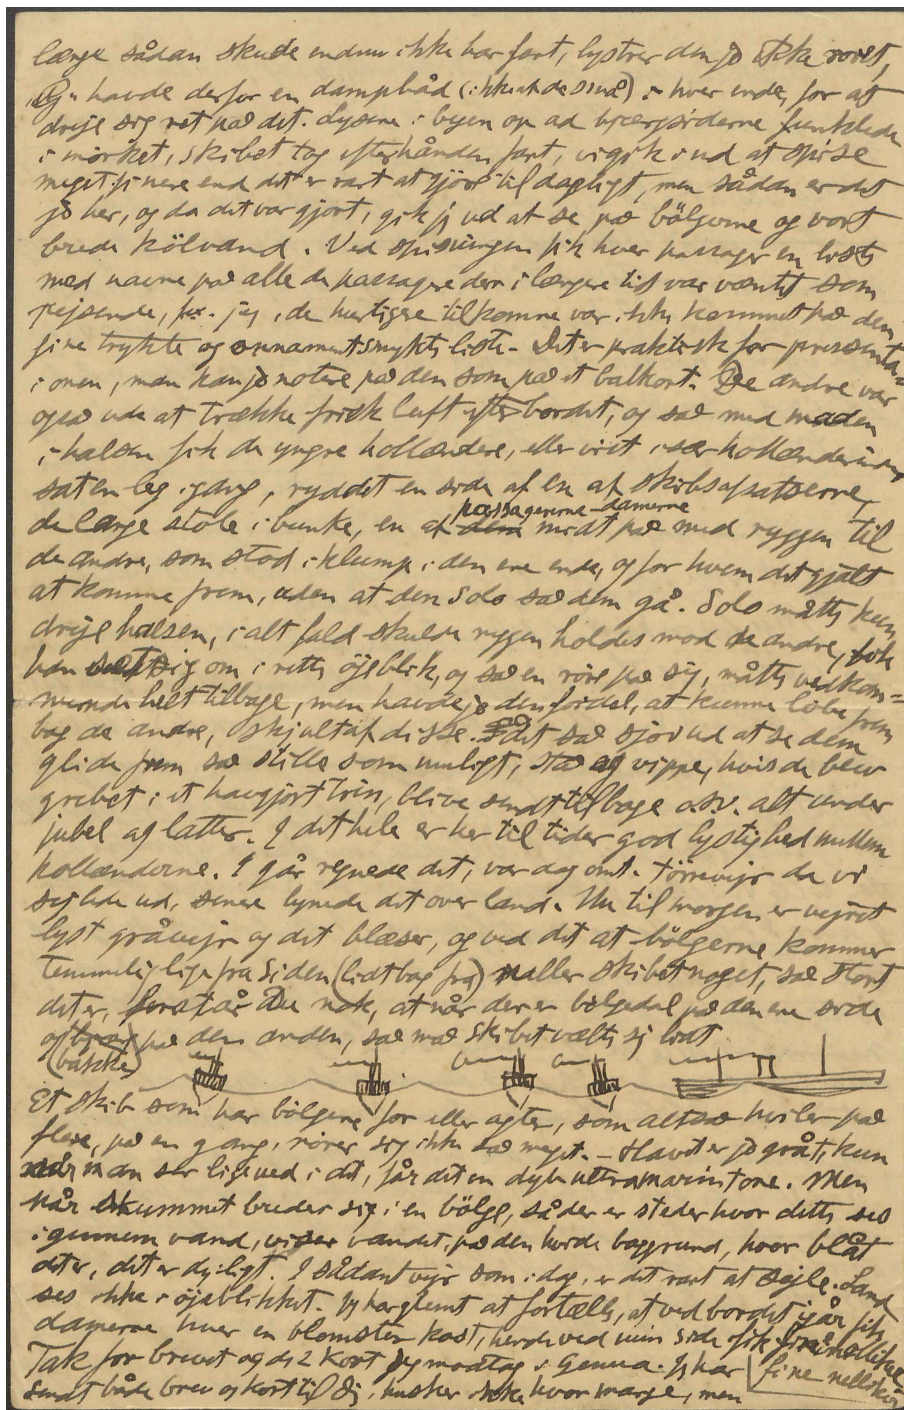 længe sådan skude endnu ikke har fart, lystrer den jo ikke roret,
havde derfor en dampbåd (ikke af de små) i hver ende, for at
dreje sig ret på det. Lysene i byen op ad bjærgsiderne funklede
i mörket, skibet tog efterhånden fart, vi gik ind at spise
meget finere end det er rart at gjöre til dagligt, men sådan er det
jo her, og da det var gjort, gik jeg ud at se på bölgerne og vort
brede kölvand. Ved spisningen fik hver passager en liste
med navne på alle de passagere der i længere tid var væntet som
rejsende, jeg, de hurtigere tilkomne var ikke kommet på den
fine trykte og ornamentsmykte liste. Det er praktisk for præsenta=
ionen, man kan jo notere på den som på et balkort. De andre var
også ude at trække frisk luft efter bordet, og så med maden
i halsen fik de yngre hollændere, eller vist især hollænderinder
sat en leg igang, ryddet en side af en af skibsafsatserne,
de lange stole i bunke, en af passagererne-damerne midt på med ryggen til
de andre, som stod i klump i den ene ende, og for hvem det gjaldt
at komme frem, uden at den Solo så dem gå. Solo måtte kun
dreje halsen, i alt fald skulde ryggen holdes mod de andre, fik
han set sig om i rette öjeblik, og så en röre på sig, måtte vedkom=
mende helt tilbage, men havde jo den fordel, at kunne löbe frem
bag de andre, skjult af disse. det så sjov ud at se dem
glide frem så stille som muligt, stå og vippe, hvis de blev
grebet i et halvgjort trin, blive sendt tilbage o.s.v. alt under
jubel og latter. I det hele er her til tider god lystighed mellem
hollænderne. I går regnede det, var dog omt. törrevejr da vi
sejlede ud, senere lynede det over land. Nu til morgen er vejret
lyst gråvejr og det blæser, og ved det at bölgerne kommer
temmelig lige fra siden (lidt bag fra) ruller skibet noget, så stort
det er, forstår Du nok, at når der er bölgedal på den ene side
og (bakke) på den anden, så må skibet vælte sig lidt
Et skib som har bölgene for eller agter, som altså hviler på
flere, på en gang, rörer sig ikke så meget. – Havet er jo gråt, kun
når man ser lige ned i det, får det en dyb ultramarintone. Men
når skummet breder sig i en bölge, så der er steder hvor dette ses
igennem vand, viser vandet, på den hvide baggrund, hvor blåt
det er, det er dejligt. I sådant vejr som i dag, er det rart at sejle. Land
ses ikke i öjeblikket. Jeg har glemt at fortælle, at ved bordet igår fik
damerne hver en blomsterkost, herde ved min side fik fine nelliker
Tak for brevet og de 2 kort jeg modtog i Genua. Jeg har
sendt både brev og kort til dig, husker ikke hvor mange, men